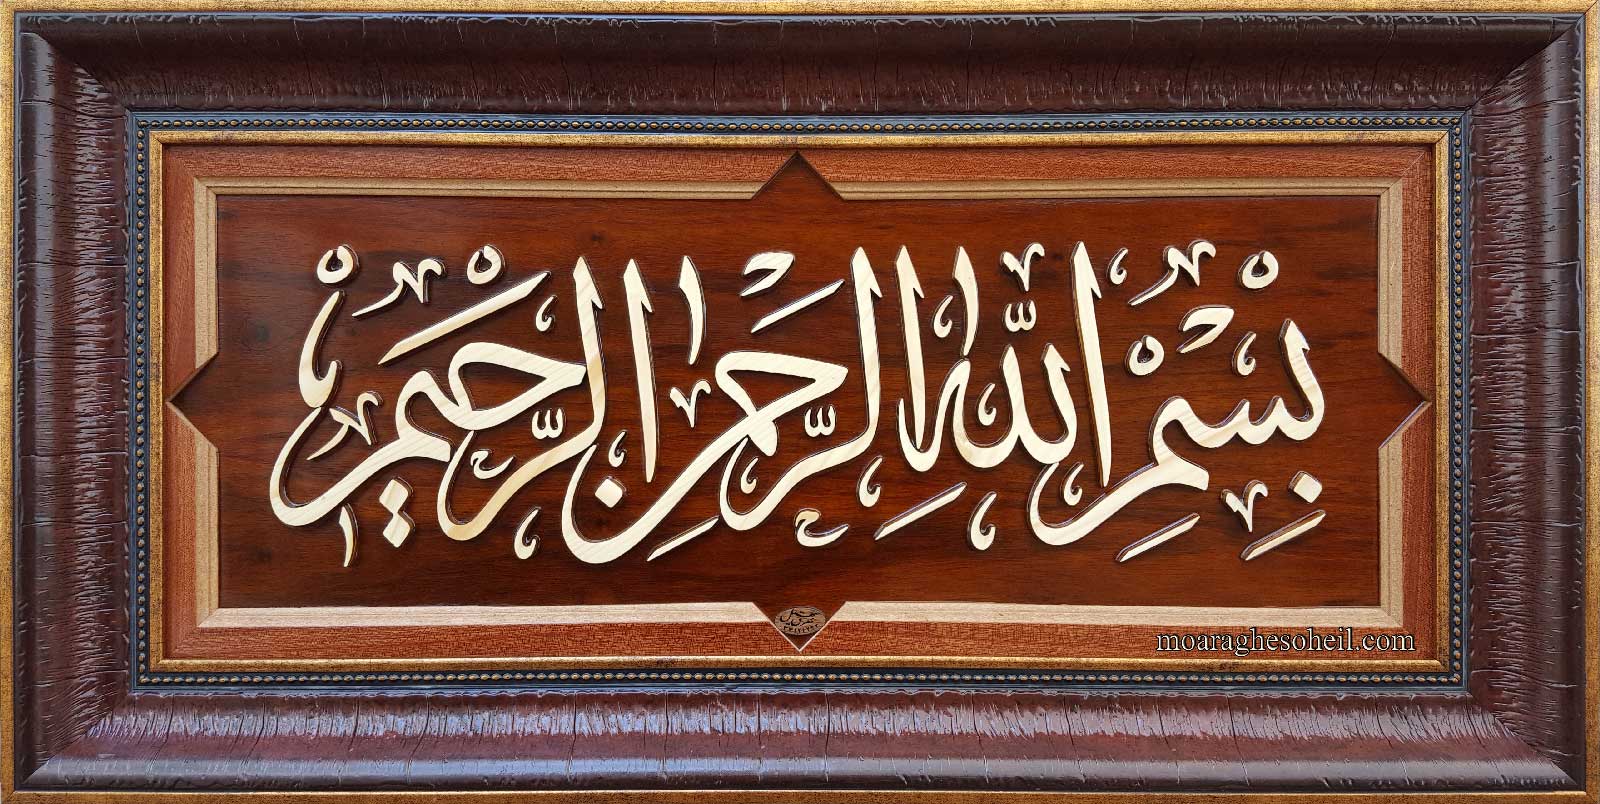 بِسْمِ اللّٰهِ الرَّحْمٰنِ الرَّحِيمِ
moaraghesoheil.com